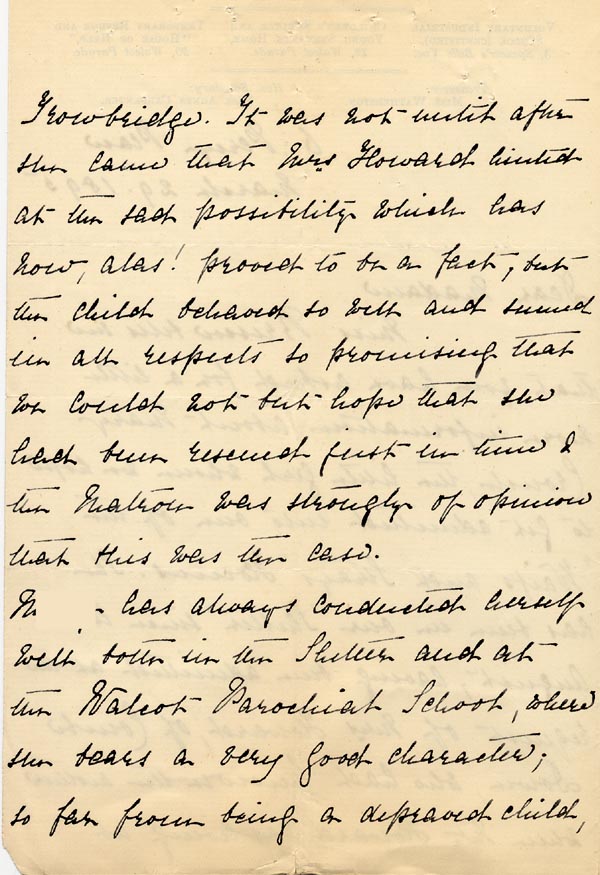 Trowbridge. It was not until after
she came that Mrs Howard hinted
at the sad possibility which has
now, alas! proved to be a fact, but
the child behaved so well and seemed
in all respects so promising that
we could not but hope that she
had been rescued just in time &
the Matron was strongly of opinion
that this was the case.
M - has always conducted herself
well both in the Shelter and at
the Walcot Parochial School, where
she bears a very good character;
so far from being a depraved child,